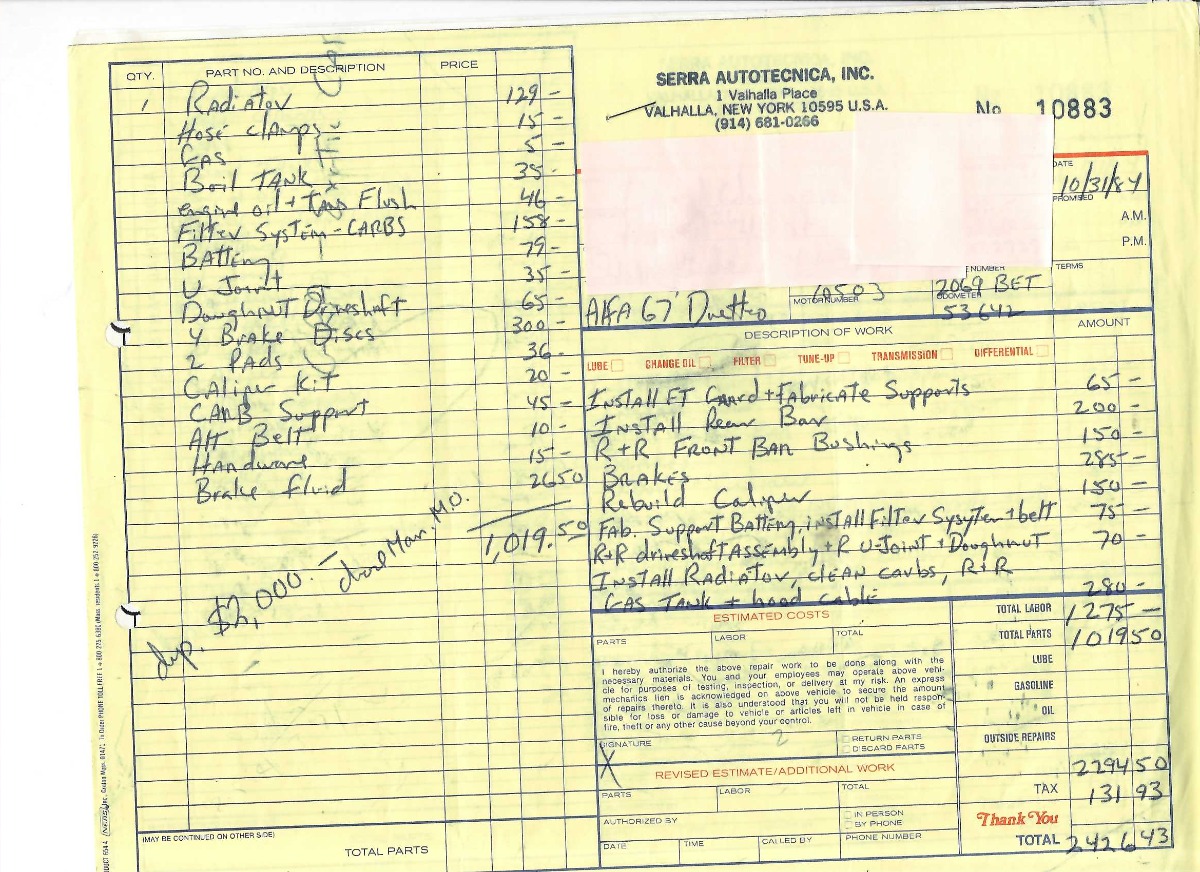 SERRA AUTOTECNICA, INC.
1 Valhalla Place
VALHALLA, NEW YORK 10595 U.S.A.
(914) 681-0266
No 10883
DATE
10/31/84
PROMISED
A.M.
P.M.
TERMS
NUMBER
2069 BET
AlfA 67' Duetto
MOTOR NUMBER
ODOMETER
53642
QTY. PART NO. AND DESCRIPTION PRICE
1 Radiator 129 -
Hose clamps 15 -
Gas 5 -
Boil TANK 35 -
engine oil + Trans Flush 46 -
Filter System - CARBS 158 -
Battery 79 -
U Joint 35 -
Doughnut Driveshaft 65 -
4 Brake Discs 300 -
2 Pads 36 -
Caliper Kit 20 -
CARB Support 45 -
Alt Belt 10 -
Hardware 15 -
Brake fluid 26 50
1,019.50
dep. $2,000. -
(MAY BE CONTINUED ON OTHER SIDE)
TOTAL PARTS
DESCRIPTION OF WORK AMOUNT
LUBE CHANGE OIL FILTER TUNE-UP TRANSMISSION DIFFERENTIAL
Install FT Guard + Fabricate Supports 65 -
Install Rear Bar 200 -
R+R FRONT BAR Bushings 150 -
Brakes 285 -
Rebuild Caliper 150 -
Fab. Support Battery, install Filter Sysytem + belt 75 -
R+R driveshaft ASSembly + R U-Joint + Doughnut 70 -
Install Radiator, clean carbs, R+R
GAS TANK + hood cable 280 -
ESTIMATED COSTS
PARTS LABOR TOTAL
I hereby authorize the above repair work to be done along with the
necessary materials. You and your employees may operate above vehi-
cle for purposes of testing, inspection, or delivery at my risk. An express
mechanics lien is acknowledged on above vehicle to secure the amount
of repairs thereto. It is also understood that you will not be held respon-
sible for loss or damage to vehicle or articles left in vehicle in case of
fire, theft or any other cause beyond your control.
SIGNATURE
X
RETURN PARTS
DISCARD PARTS
REVISED ESTIMATE/ADDITIONAL WORK
PARTS LABOR TOTAL
AUTHORIZED BY
IN PERSON
BY PHONE
DATE TIME CALLED BY PHONE NUMBER
TOTAL LABOR 1275 -
TOTAL PARTS 1019 50
LUBE
GASOLINE
OIL
OUTSIDE REPAIRS
2294 50
TAX 131 93
Thank You
TOTAL 2426 43